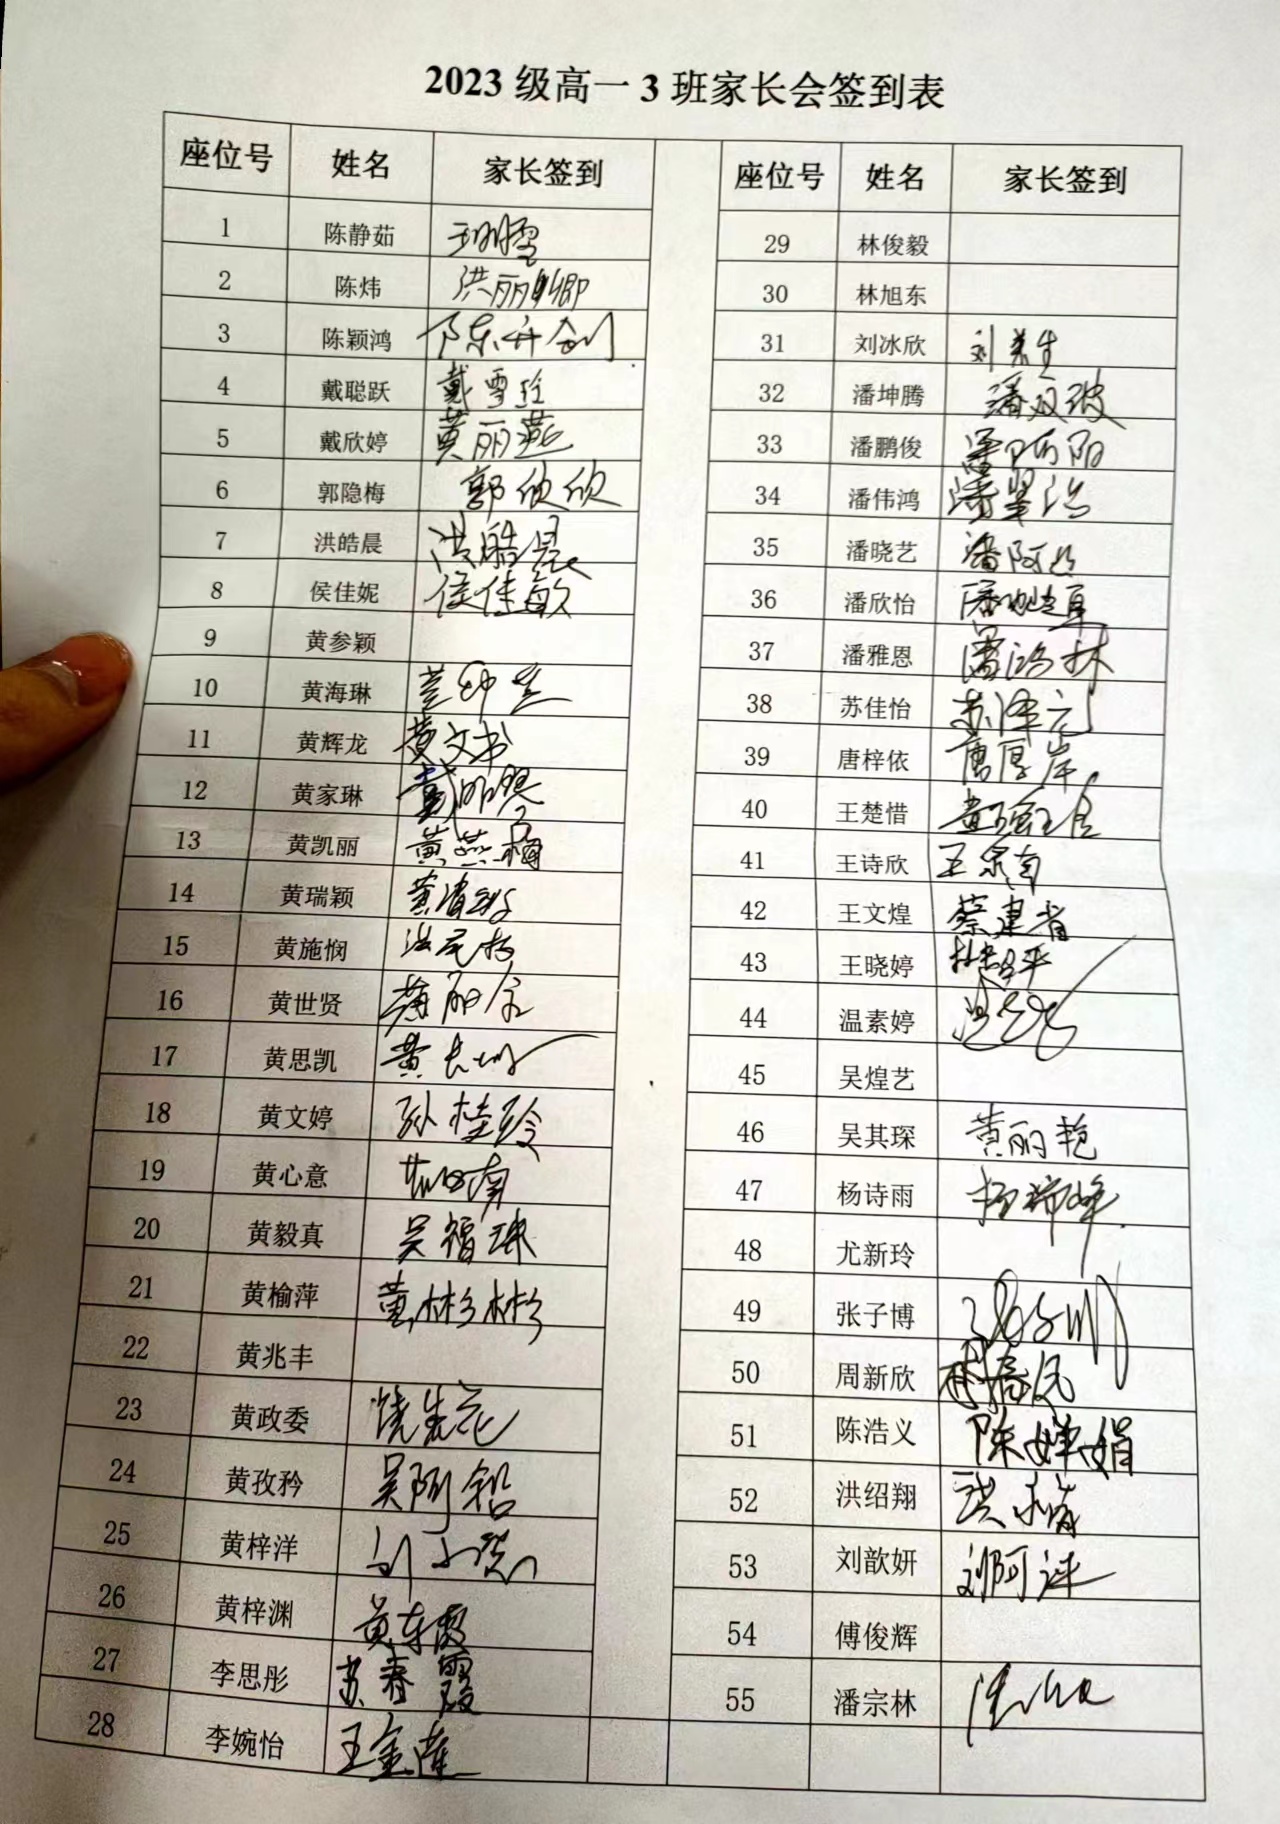 2023级高一3班家长会签到表
座位号 姓名 家长签到 座位号 姓名 家长签到
1 陈静茹 29 林俊毅
2 陈炜 洪丽卿 30 林旭东
3 陈颖鸿 31 刘冰欣
4 戴聪跃 戴雪珍 32 潘坤腾
5 戴欣婷 黄丽燕 33 潘鹏俊
6 郭隐梅 郭欣欣 34 潘伟鸿
7 洪皓晨 洪皓晨 35 潘晓艺
8 侯佳妮 侯佳敏 36 潘欣怡
9 黄参颖 37 潘雅恩 潘鸿林
10 黄海琳 38 苏佳怡 苏泽元
11 黄辉龙 黄文书 39 唐梓依 唐厚岸
12 黄家琳 40 王楚惜
13 黄凯丽 黄燕梅 41 王诗欣
14 黄瑞颖 42 王文煌 蔡建省
15 黄施悯 43 王晓婷
16 黄世贤 44 温素婷
17 黄思凯 45 吴煌艺
18 黄文婷 孙桂玲 46 吴其琛 黄丽艳
19 黄心意 47 杨诗雨 杨瑞峰
20 黄毅真 吴福珠 48 尤新玲
21 黄榆萍 黄彬彬 49 张子博
22 黄兆丰 50 周新欣
23 黄政委 51 陈浩义 陈婵娟
24 黄孜矜 吴阿铅 52 洪绍翔
25 黄梓洋 53 刘歆妍
26 黄梓渊 黄东霞 54 傅俊辉
27 李思彤 苏春霞 55 潘宗林
28 李婉怡 王金莲